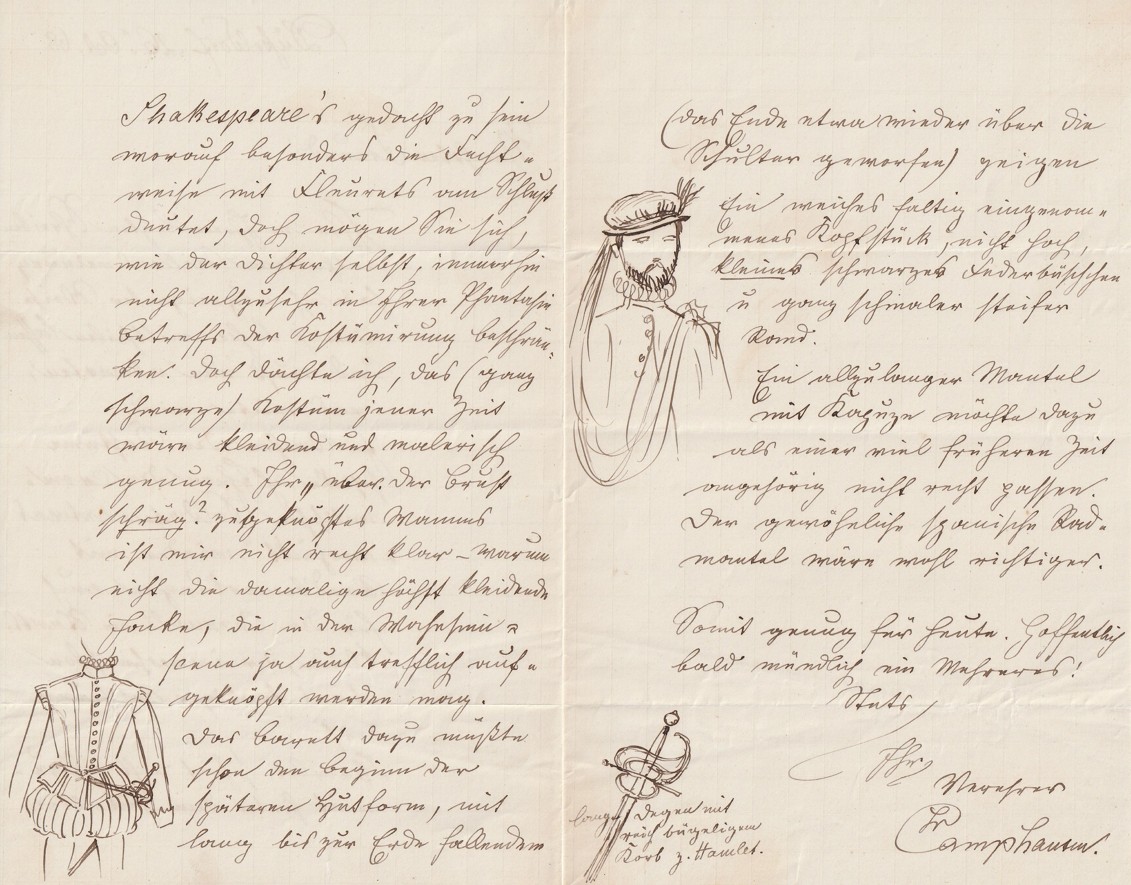 Shakespeare's gedacht zu sein
worauf besonders die Fecht-
weise mit Fleurets am Schluß
deutet, doch mögen Sie sich,
wie der Dichter selbst, immerhin
nicht allzusehr in Ihrer Phantasie
betreffs der Kostümirung beschrän-
ken. Doch dächte ich, das (ganz
schwarze) Kostüm jener Zeit
wäre kleidend und malerisch
genug. Ihr „über der Brust
schräg? zugeknöpftes Wamms
ist mir nicht recht klar – warum
nicht die damalige höchst kleidende
Jacke, die in der Wahnsinn-
scene ja auch trefflich auf-
geknöpft werden mag.
Das Barett dazu müßte
schon den Beginn der
späteren Hutform, mit
lang bis zur Erde fallendem
(das Ende etwa wieder über die
Schulter geworfen) zeigen
Ein weiches faltig eingenom-
menes Kopfstück, nicht hoch,
kleines schwarzes Federbüschchen
u ganz schmaler steifer
Rand.
Ein allzulanger Mantel
mit Kapuze möchte dazu
als einer viel früheren Zeit
angehörig nicht recht passen.
Der gewöhnliche spanische Rad-
mantel wäre wohl richtiger.
Somit genug für heute. Hoffentlich
bald mündlich ein Mehreres!
Stets
Ihr
Verehrer
Camphausen.
lange Degen mit
reich bügeligem
Korb z. Hamlet.